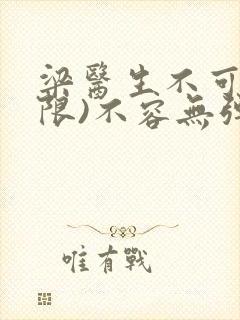 梁醫生不可
限)不容無強
唯有戰